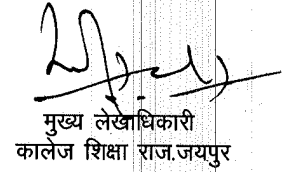 मुख्य लेखाधिकारी
कालेज शिक्षा राज.जयपुर